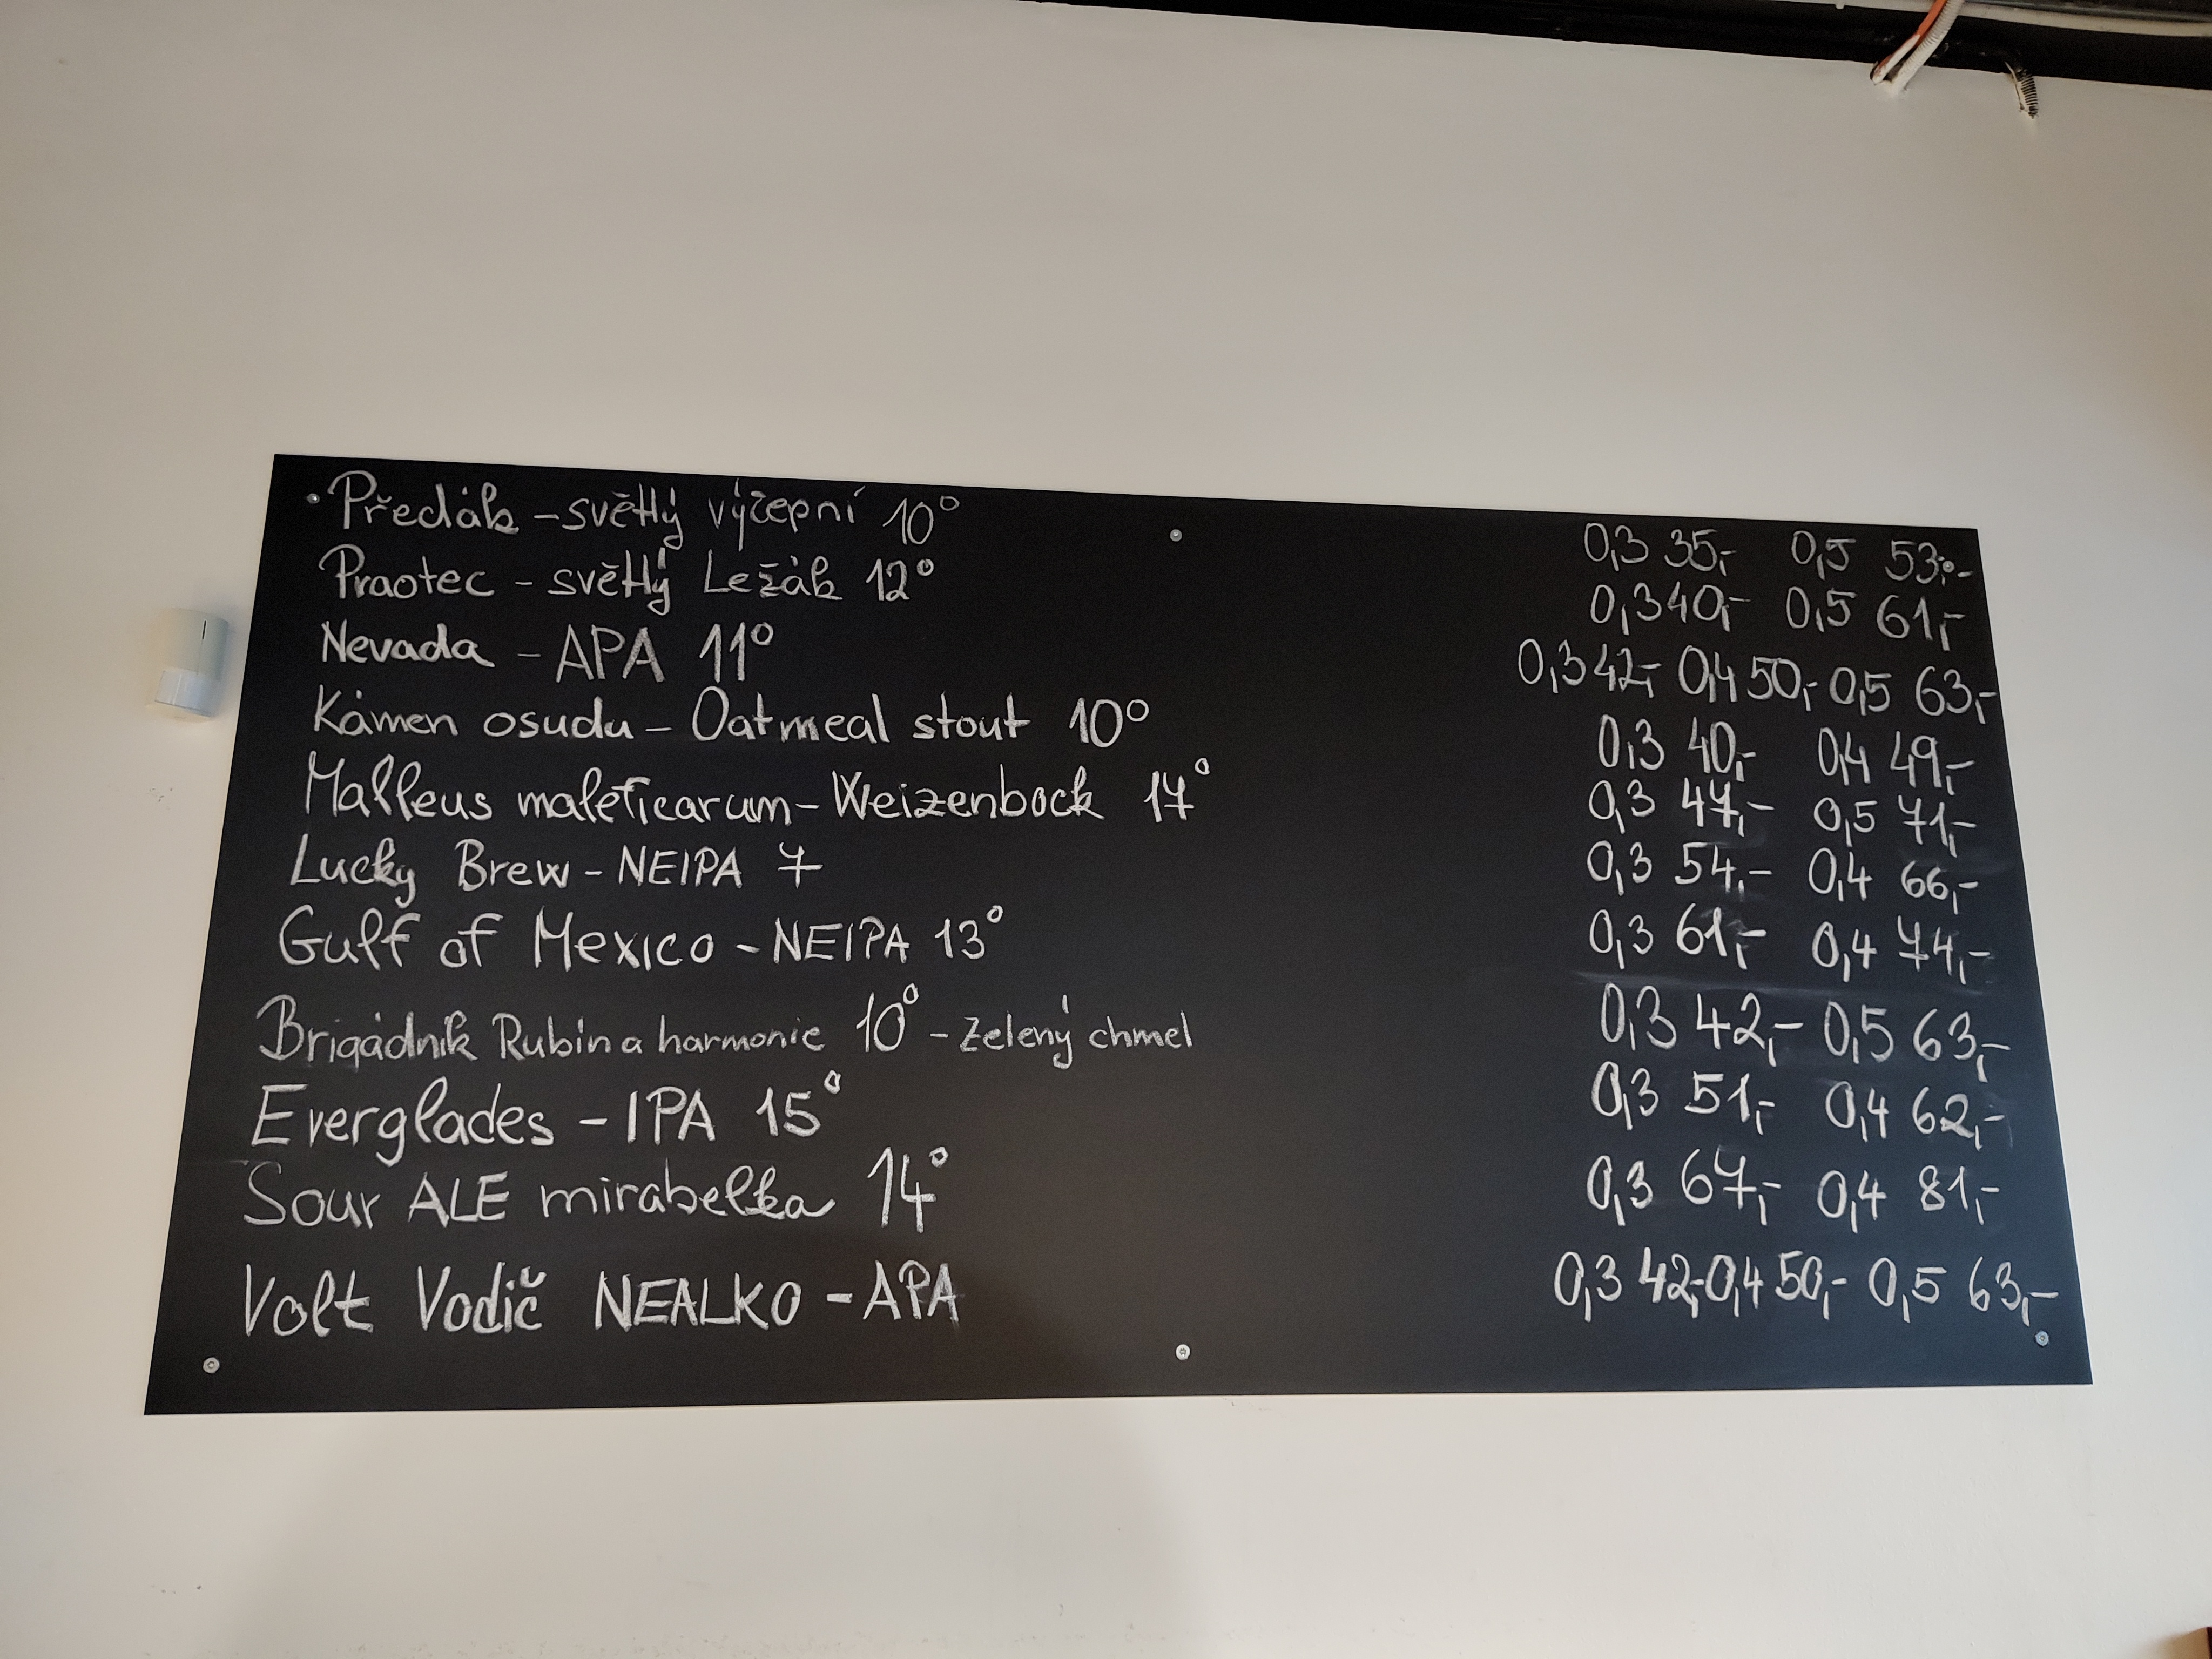 Předák - světlý výčepní 10° 0,3 35,- 0,5 53,-
Praotec - světlý Ležák 12° 0,3 40,- 0,5 61,-
Nevada - APA 11° 0,3 42,- 0,4 50,- 0,5 63,-
Kámen osudu - Oatmeal stout 10° 0,3 40,- 0,4 49,-
Malleus maleficarum - Weizenbock 17° 0,3 47,- 0,5 71,-
Lucky Brew - NEIPA 7 0,3 54,- 0,4 66,-
Gulf of Mexico - NEIPA 13° 0,3 61,- 0,4 74,-
Brigádník Rubín a harmonie 10° - zelený chmel 0,3 42,- 0,5 63,-
Everglades - IPA 15° 0,3 51,- 0,4 62,-
Sour ALE mirabelka 14° 0,3 67,- 0,4 81,-
Volt Vodič NEALKO - APA 0,3 42,- 0,4 50,- 0,5 63,-